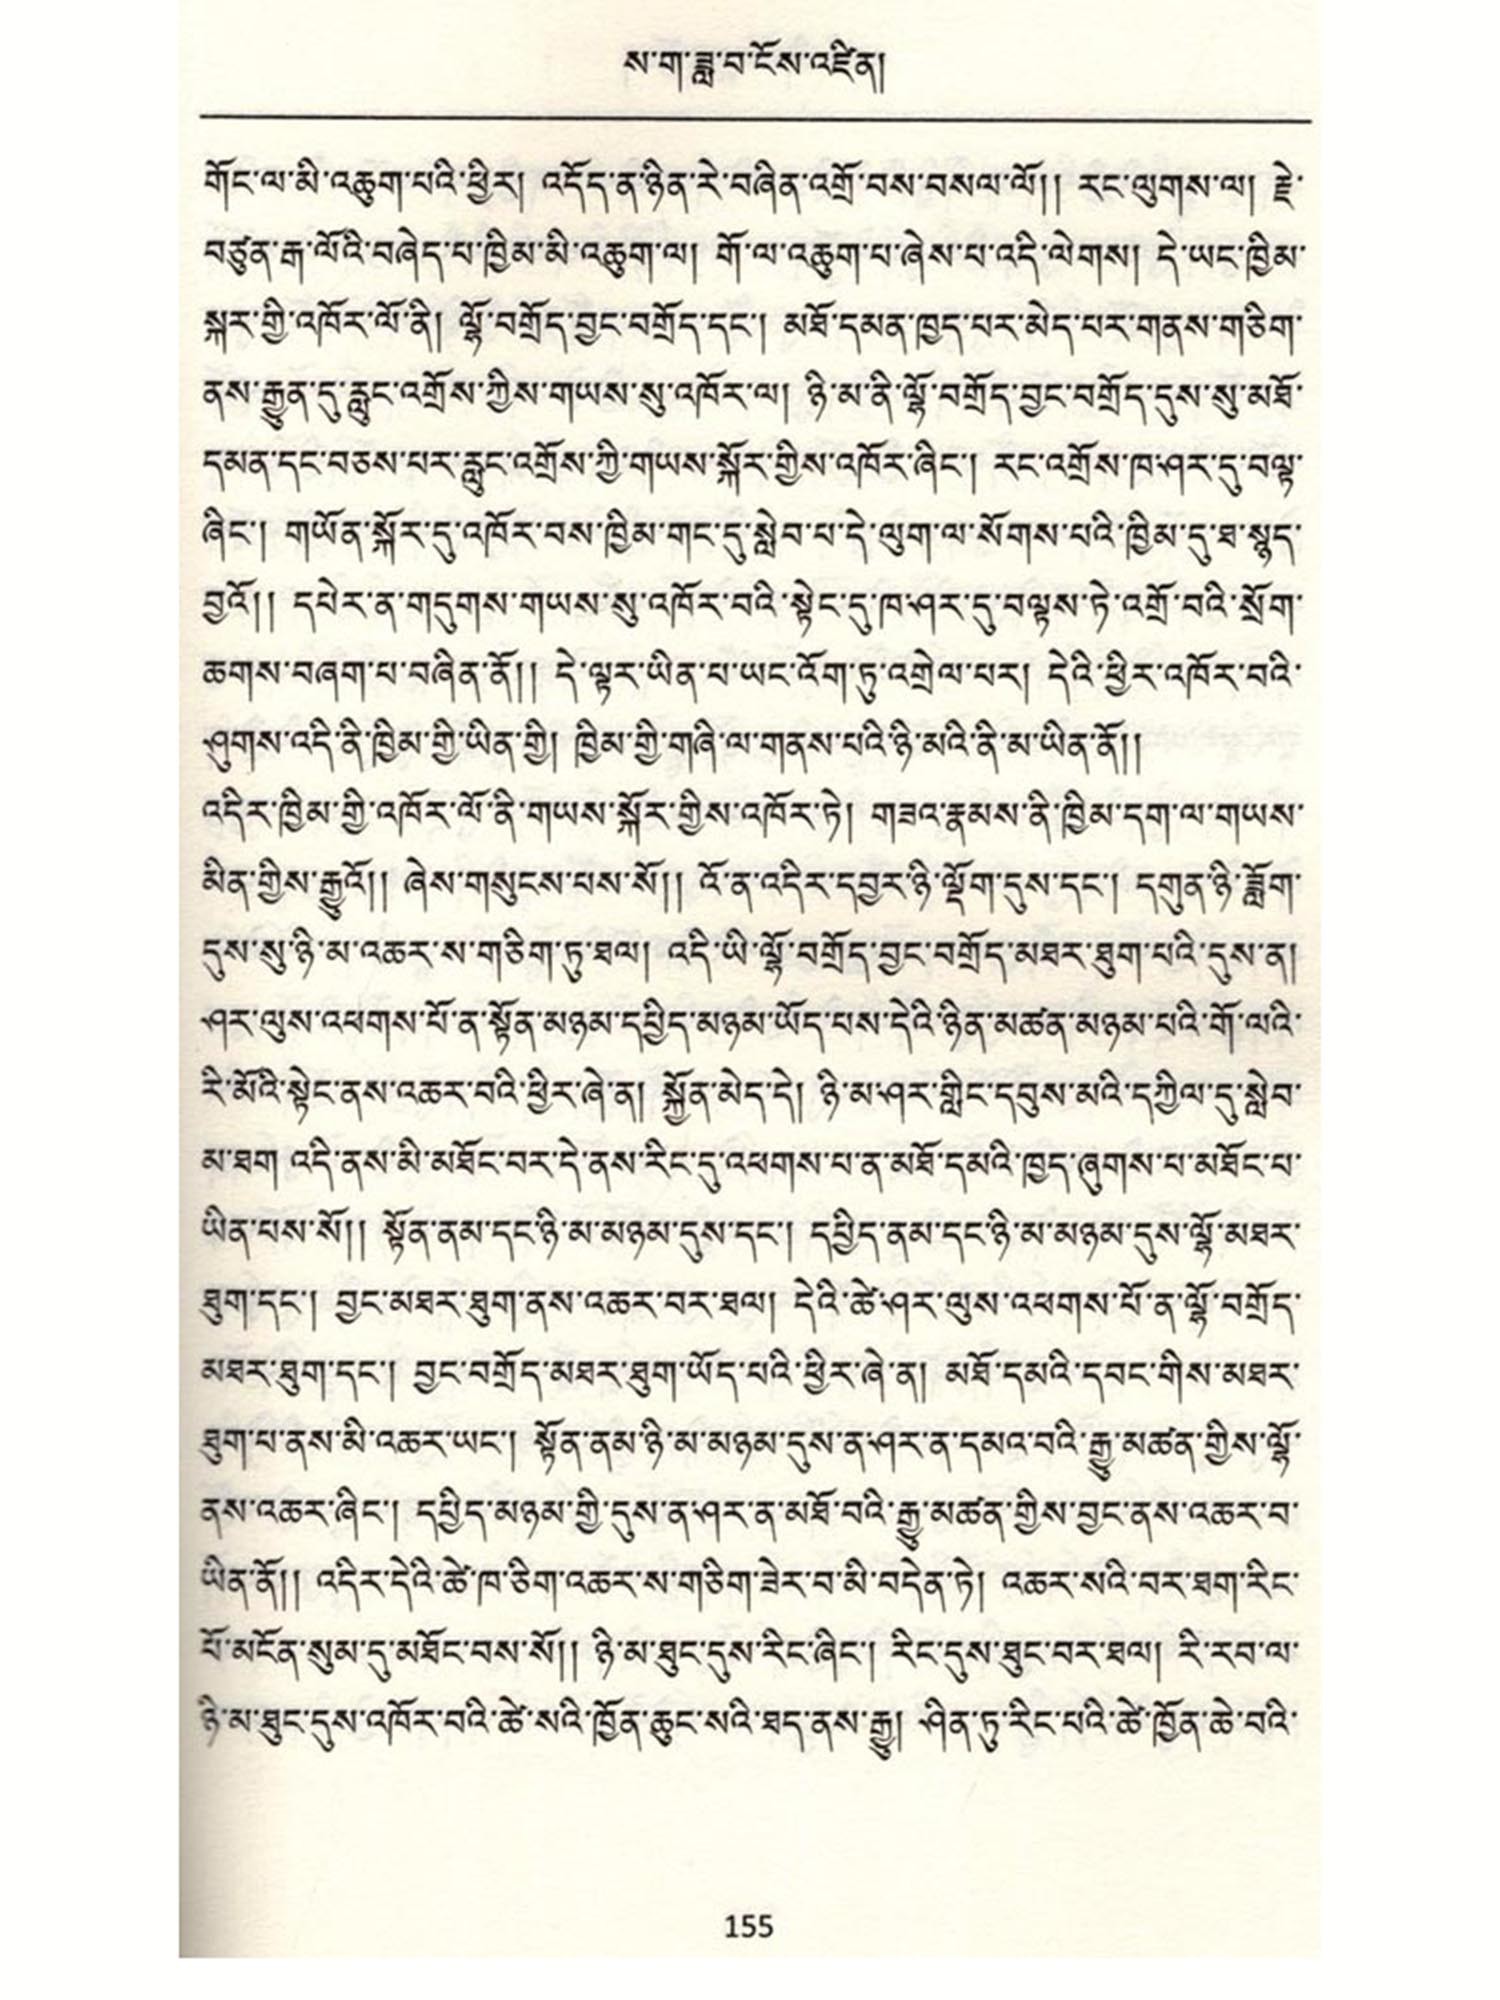 ས་ག་ཟླ་བ་ངོས་འཛིན།
གོང་ལ་མི་འཆུག་པའི་ཕྱིར། འདོད་ན་ཉིན་རེ་བཞིན་འགྲོ་བས་བསལ་ལོ།། རང་ལུགས་ལ། རྗེ་
བཙུན་རྒ་ལོའི་བཞེད་པ་ཁྱིམ་མི་འཆུག་ལ། གོ་ལ་འཆུག་པ་ཞེས་པ་འདི་ལེགས། དེ་ཡང་ཁྱིམ་
སྐར་གྱི་འཁོར་ལོ་ནི། ལྷོ་བགྲོད་བྱང་བགྲོད་དང་། མཐོ་དམན་ཁྱད་པར་མེད་པར་གནས་གཅིག་
ནས་རྒྱུན་དུ་རླུང་འགྲོས་ཀྱིས་གཡས་སུ་འཁོར་ལ། ཉི་མ་ནི་ལྷོ་བགྲོད་བྱང་བགྲོད་དུས་སུ་མཐོ་
དམན་དང་བཅས་པར་རླུང་འགྲོས་ཀྱི་གཡས་སྐོར་གྱིས་འཁོར་ཞིང་། རང་འགྲོས་ཁ་ཤར་དུ་བལྟ་
ཞིང་། གཡོན་སྐོར་དུ་འཁོར་བས་ཁྱིམ་གང་དུ་སླེབ་པ་དེ་ལུག་ལ་སོགས་པའི་ཁྱིམ་དུ་ཐ་སྙད་
བྱའོ།། དཔེར་ན་གདུགས་གཡས་སུ་འཁོར་བའི་སྟེང་དུ་ཁ་ཤར་དུ་བལྟས་ཏེ་འགྲོ་བའི་སྲོག་
ཆགས་བཞག་པ་བཞིན་ནོ།། དེ་ལྟར་ཡིན་པ་ཡང་འོག་ཏུ་འགྲེལ་པར། དེའི་ཕྱིར་འཁོར་བའི་
ཤུགས་འདི་ནི་ཁྱིམ་གྱི་ཡིན་གྱི། ཁྱིམ་གྱི་གཞི་ལ་གནས་པའི་ཉི་མའི་ནི་མ་ཡིན་ནོ།།
འདིར་ཁྱིམ་གྱི་འཁོར་ལོ་ནི་གཡས་སྐོར་གྱིས་འཁོར་ཏེ། གཟའ་རྣམས་ནི་ཁྱིམ་དག་ལ་གཡས་
མིན་གྱིས་རྒྱུའོ།། ཞེས་གསུངས་པས་སོ།། འོ་ན་འདིར་དབྱར་ཉི་ལྡོག་དུས་དང་། དགུན་ཉི་ཟློག་
དུས་སུ་ཉི་མ་འཆར་ས་གཅིག་ཏུ་ཐལ། འདི་ཡི་ལྷོ་བགྲོད་བྱང་བགྲོད་མཐར་ཐུག་པའི་དུས་ན།
ཤར་ལུས་འཕགས་པོ་ན་སྟོན་མཉམ་དཔྱིད་མཉམ་ཡོད་པས་དེའི་ཉིན་མཚན་མཉམ་པའི་གོ་ལའི་
རི་མོའི་སྟེང་ནས་འཆར་བའི་ཕྱིར་ཞེ་ན། སྐྱོན་མེད་དེ། ཉི་མ་ཤར་གླིང་དབུས་མའི་དཀྱིལ་དུ་སླེབ་
མ་ཐག འདི་ནས་མི་མཐོང་བར་དེ་ནས་རིང་དུ་འཕགས་པ་ན་མཐོ་དམའི་ཁྱད་ཞུགས་པ་མཐོང་པ་
ཡིན་པས་སོ།། སྟོན་ནམ་དང་ཉི་མ་མཉམ་དུས་དང་། དཔྱིད་ནམ་དང་ཉི་མ་མཉམ་དུས་ལྷོ་མཐར་
ཐུག་དང་། བྱང་མཐར་ཐུག་ནས་འཆར་བར་ཐལ། དེའི་ཚེ་ཤར་ལུས་འཕགས་པོ་ན་ལྷོ་བགྲོད་
མཐར་ཐུག་དང་། བྱང་བགྲོད་མཐར་ཐུག་ཡོད་པའི་ཕྱིར་ཞེ་ན། མཐོ་དམའི་དབང་གིས་མཐར་
ཐུག་པ་ནས་མི་འཆར་ཡང་། སྟོན་ནམ་ཉི་མ་མཉམ་དུས་ན་ཤར་ན་དམའ་བའི་རྒྱུ་མཚན་གྱིས་ལྷོ་
ནས་འཆར་ཞིང་། དཔྱིད་མཉམ་གྱི་དུས་ན་ཤར་ན་མཐོ་བའི་རྒྱུ་མཚན་གྱིས་བྱང་ནས་འཆར་བ་
ཡིན་ནོ།། འདིར་དེའི་ཚེ་ཁ་ཅིག་འཆར་ས་གཅིག་ཟེར་བ་མི་བདེན་ཏེ། འཆར་སའི་བར་ཐག་རིང་
པོ་མངོན་སུམ་དུ་མཐོང་བས་སོ།། ཉི་མ་ཐུང་དུས་རིང་ཞིང་། རིང་དུས་ཐུང་བར་ཐལ། རི་རབ་ལ་
ཉི་མ་ཐུང་དུས་འཁོར་བའི་ཚེ་སའི་ཁྱོན་ཆུང་སའི་ཐད་ནས་རྒྱུ། ཤིན་ཏུ་རིང་པའི་ཚེ་ཁྱོན་ཆེ་བའི་
155